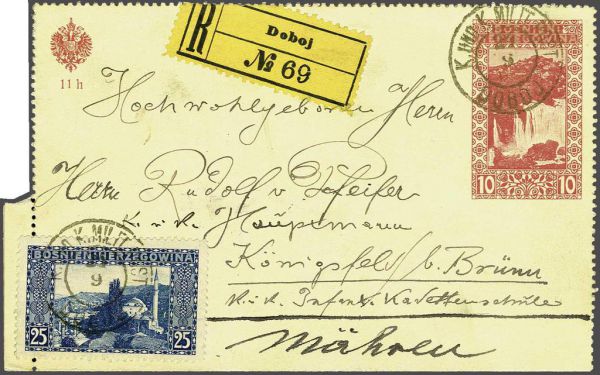 11 h
R
Doboj
№ 69
BOSNIEN HERZEGOWINA
10 10
K. UND K. MILIT. POST
9
DOBOJ
Hochwohlgeboren Herrn
Herrn Rudolf v Pfeifer
k.u.k. Hauptmann
Königsfeld b. Brünn
k.u.k. Infant. Kadettenschule
Mähren
BOSNIEN HERZEGOWINA
25 25
K. MILIT
9